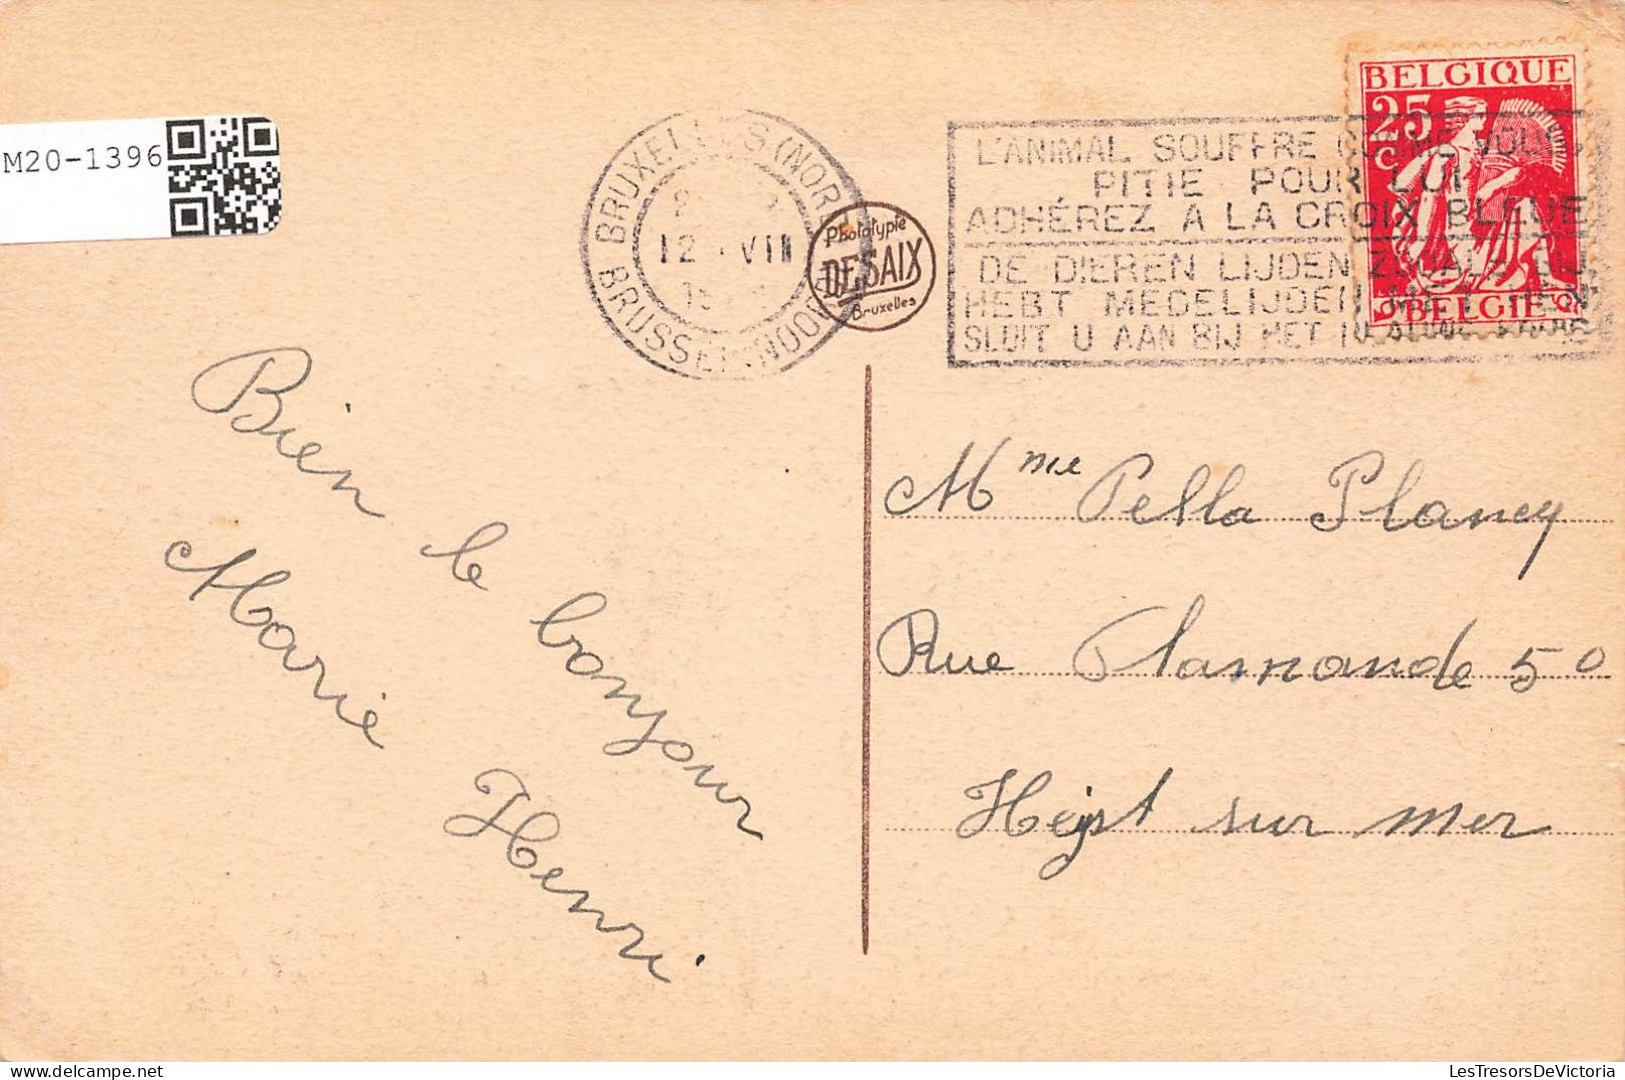 M20-1396
BRUXELLES (NORD)
12 VIII
BRUSSEL (NOORD)
Phototypie
DESAIX
Bruxelles
L'ANIMAL SOUFFRE COMME VOUS
PITIE POUR LUI
ADHÉREZ A LA CROIX BLEUE
DE DIEREN LIJDEN ZOOALS
HEBT MEDELIJDEN MET HEN
SLUIT U AAN BIJ HET
BELGIQUE
25
C
BELGIE
Bien le bonjour
Marie Henri
Mme Pella Plancy
Rue Flamande 50
Heyst sur mer
LesTresorsDeVictoria